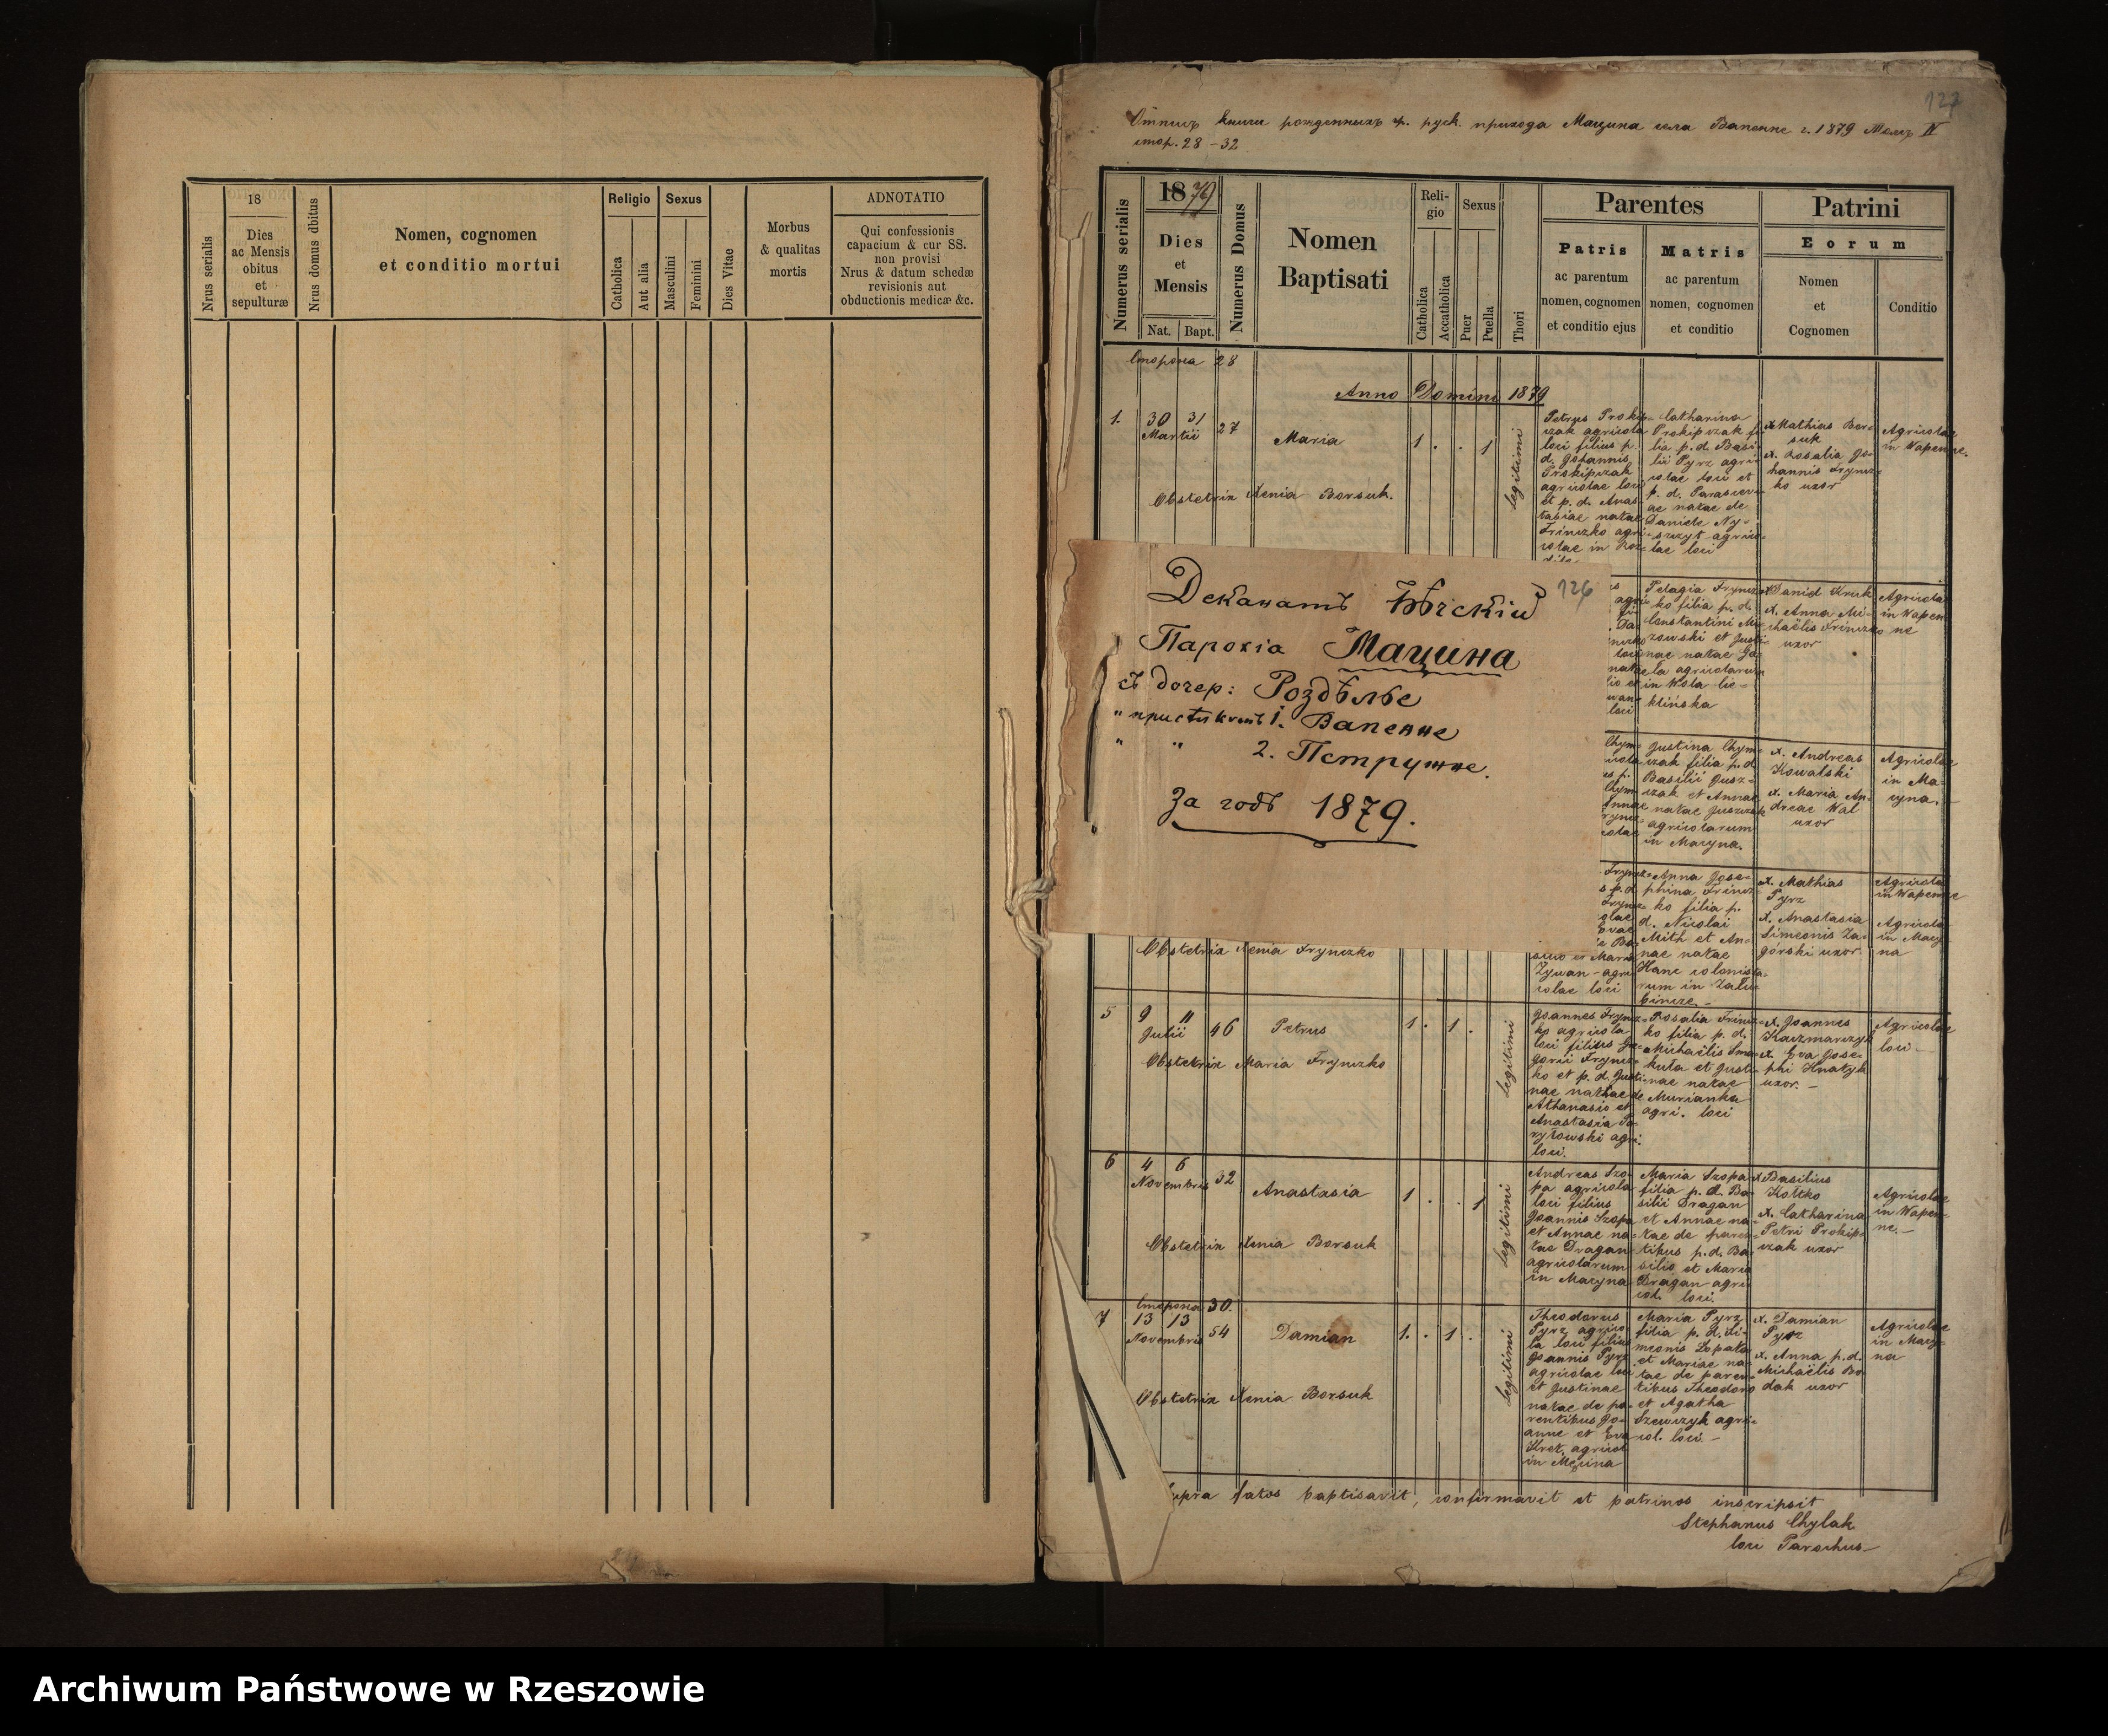 18
Dies
ac Mensis
obitus
et
sepulturæ
Nrus serialis
Nrus domus dbitus
Nomen, cognomen
et conditio mortui
Religio
Catholica
Aut alia
Sexus
Masculini
Feminini
Dies Vitae
Morbus
& qualitas
mortis
ADNOTATIO
Qui confessionis
capacium & cur SS.
non provisi
Nrus & datum schedæ
revisionis aut
obductionis medicæ &c.
127
книги рожденныхъ гр. руск. прихода Мацина села Вапенне г. 1879 IV
стор. 28 - 32
Numerus serialis
1879
Dies
et
Mensis
Nat. Bapt.
Numerus Domus
Nomen
Baptisati
Reli-
gio
Catholica
Accatholica
Sexus
Puer
Puella
Thori
Parentes
Patris
ac parentum
nomen, cognomen
et conditio ejus
Matris
ac parentum
nomen, cognomen
et conditio
Patrini
Eorum
Nomen
et
Cognomen
Conditio
сторона 28
Anno Domini 1879
1. 30 31
Martii
27
Maria
1 . . 1
Legitimi
Obstetrix Xenia Borsuk.
Petrus Prokip-
czak agricola
loci filius p.
d. Johannis
Prokipczak
agricolae loci
et p. d. Anas-
tasiae natae
Frinczko agri-
colae in Roz-
Catharina
Prokipczak fi-
lia p. d. Basi-
lii Pyrz agri-
colae loci et
p. d. Parascevi-
ae natae de
Daniele Ny-
szczyt agrico-
lae loci
x. Mathias Bor-
suk
x. Rosalia Jo-
hannis Fryncz-
ko uxor
Agricolae
in Wapenne.
126
Деканатъ Бѣчскій
Парохія Мацина
съ дочер: Роздѣлье
" присѣлками 1. Вапенне
" " 2. Петрушне.
За годъ 1879.
Pelagia Fryncz-
ko filia p. d.
Constantini Mu-
zowski et Justi-
nae natae Ga-
la agricolarum
in Wola Cie-
klińska
x. Daniel Kruk
x. Anna Mi-
chaëlis Frinczko
uxor
Agricolae
in Wapen
ne
Justina Chym-
czak filia p. d.
Basilii Jusz-
czak et Annae
natae Juszczak
agricolarum
in Macyna.
x. Andreas
Kowalski
x. Maria An-
dreae Wal
uxor
Agricolae
in Ma-
cyna.
Obstetrix Xenia Frynczko
Zywan - agri-
colae loci
Anna Jose-
phina Frincz-
ko filia p.
d. Nicolai
Mith et An-
nae natae
Hanc colonista-
rum in Zału-
bincze.-
x. Mathias
Pyrz
x. Anastasia
Simeonis Za-
górski uxor.
Agricola
in Wapenne
Agricola
in Macy
na
5 9 11
Julii
46
Petrus
1 . 1 .
Legitimi
Obstetrix Maria Frynczko
Joannes Fryncz-
ko agricola
loci filius Gre-
gorii Fryncz-
ko et p. d. Justi-
nae natae de
Athanasio et
Anastasia Po-
ryłowski agri.
loci.
Rosalia Frincz-
ko filia p. d.
Michaëlis Sma-
kuła et Justi-
nae natae
Murianka
agri. loci
x. Joannes
Kaczmarczyk
x. Eva Jose-
phi Hnatyk
uxor. -
Agricolae
loci -
6 4 6
Novembris
32
Anastasia
1 . . 1
Legitimi
Obstetrix Xenia Borsuk
Andreas Szo-
pa agricola
loci filius
Joannis Szopa
et Annae na-
tae Dragan
agricolarum
in Macyna
Maria Szopa
filia p. d. Ba-
silii Dragan
et Annae na-
tae de paren-
tibus p. d. Ba-
silio et Maria
Dragan agri-
col. loci.
x. Basilius
Kottko
x. Catharina
Petri Prokip-
czak uxor
Agricolae
in Wapen-
ne. -
сторона 30.
7 13 13
Novembris
54
Damian
1. . 1 .
Legitimi
Obstetrix Xenia Borsuk
Theodorus
Pyrz agrico-
la loci filius
Joannis Pyrz
agricolae loci
et Justinae
natae de pa-
rentibus Jo-
anne et Eva
Kret. agricol
in Męcina
Maria Pyrz
filia p. d. Si-
meonis Łopata
et Mariae na-
tae de paren-
tibus Theodoro
et Agatha
Szewczyk agri-
col. loci. -
x. Damian
Pyrz
x. Anna p. d.
Michaëlis Bo-
dak uxor
Agricolae
in Macy-
na
Supra fatos baptisavit, confirmavit et patrinos inscripsit
Stephanus Chylak
loci Parochus-
Archiwum Państwowe w Rzeszowie